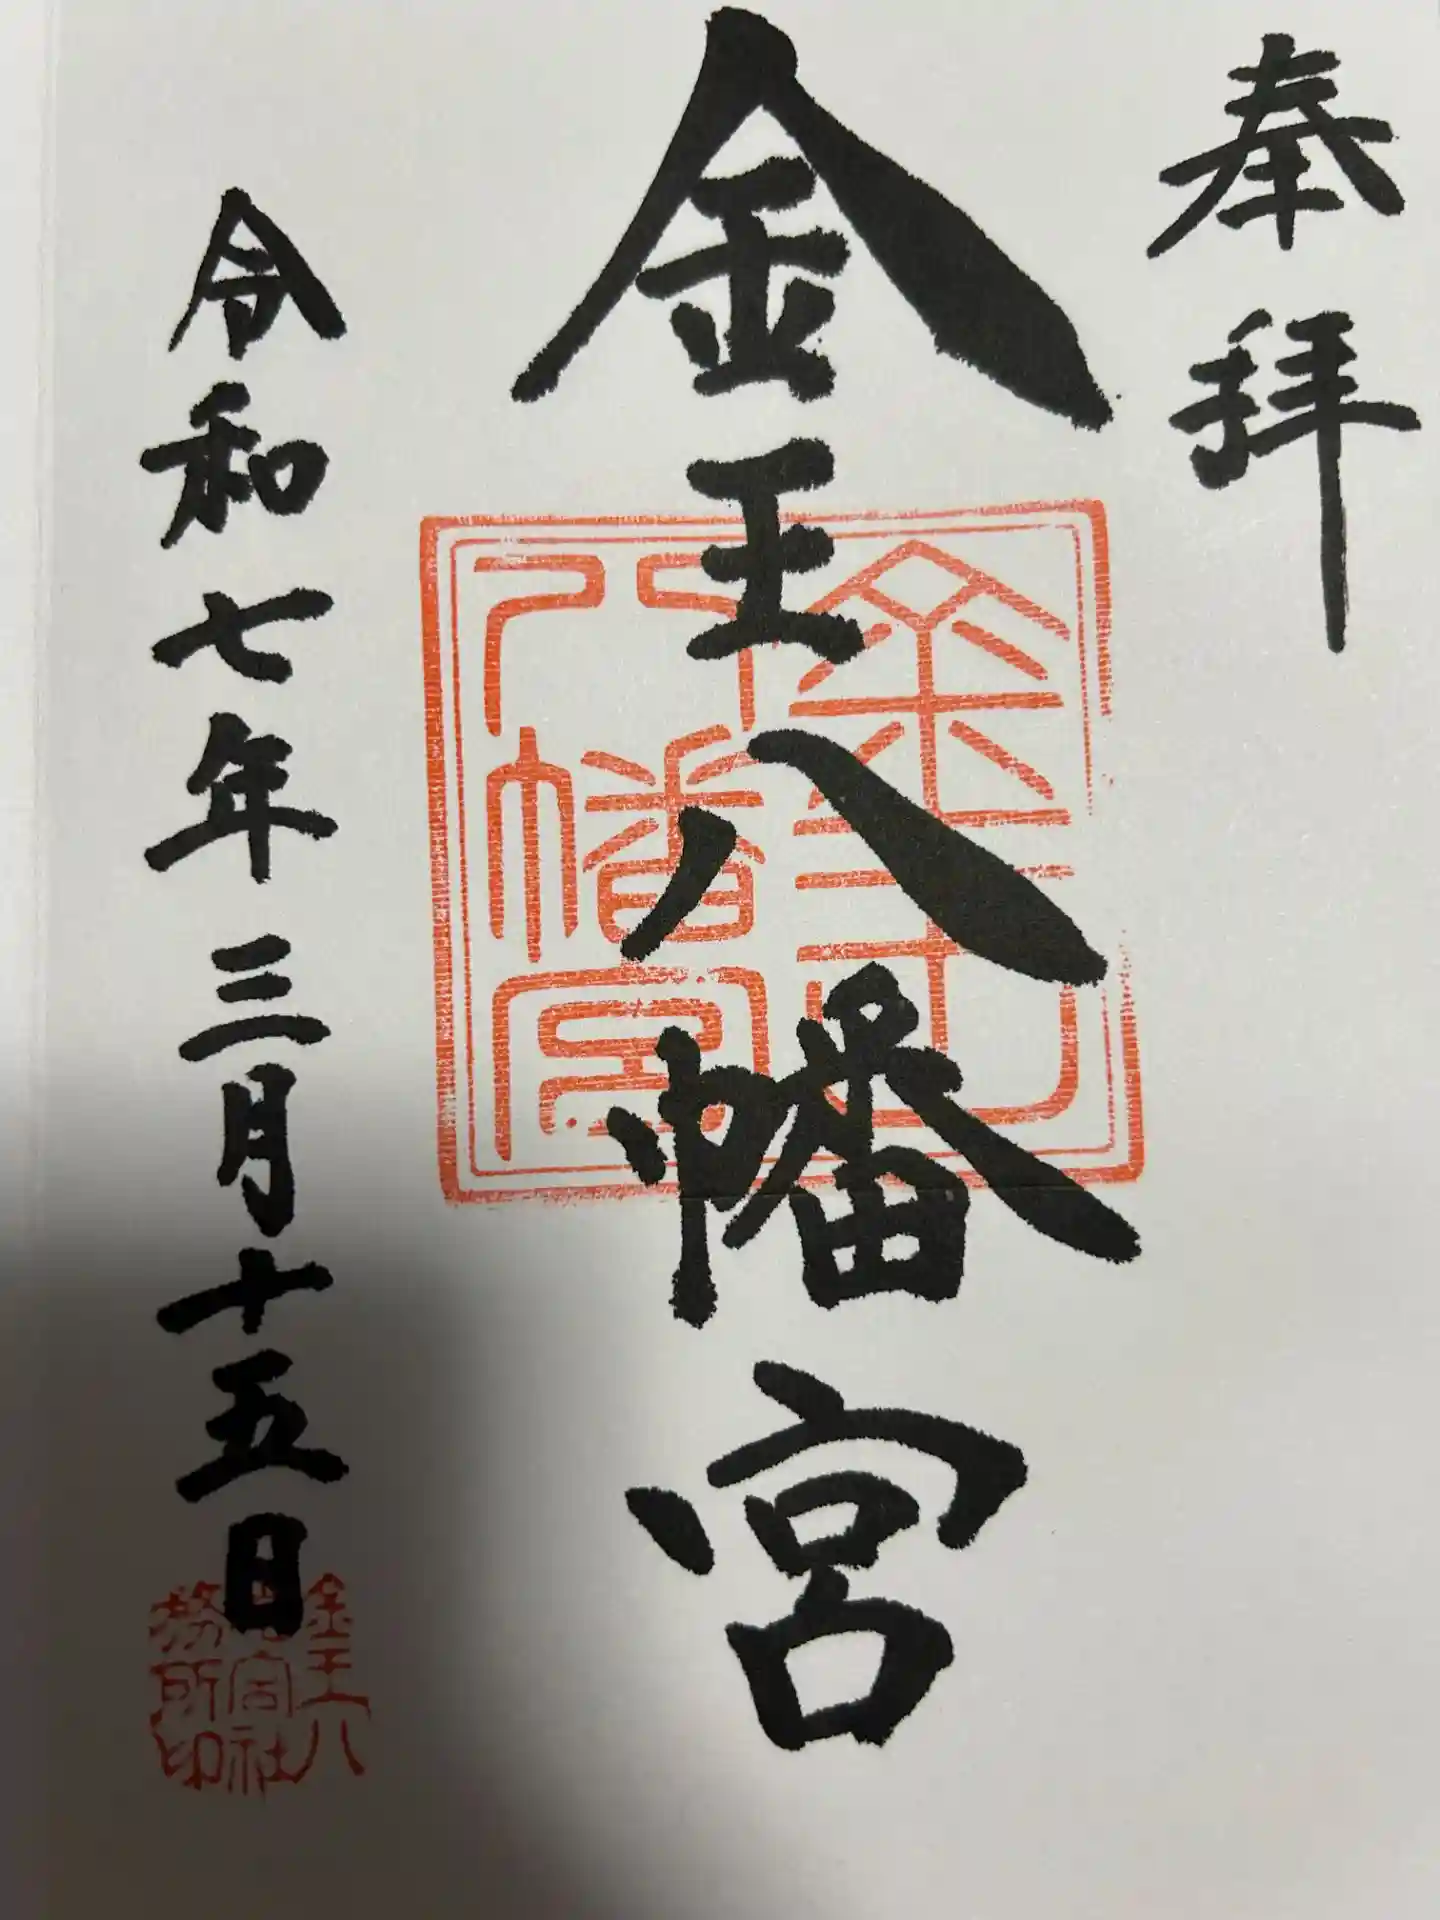 奉拝
金王八幡宮
金王
八幡宮
令和七年三月十五日
金王八
幡宮社
務所印